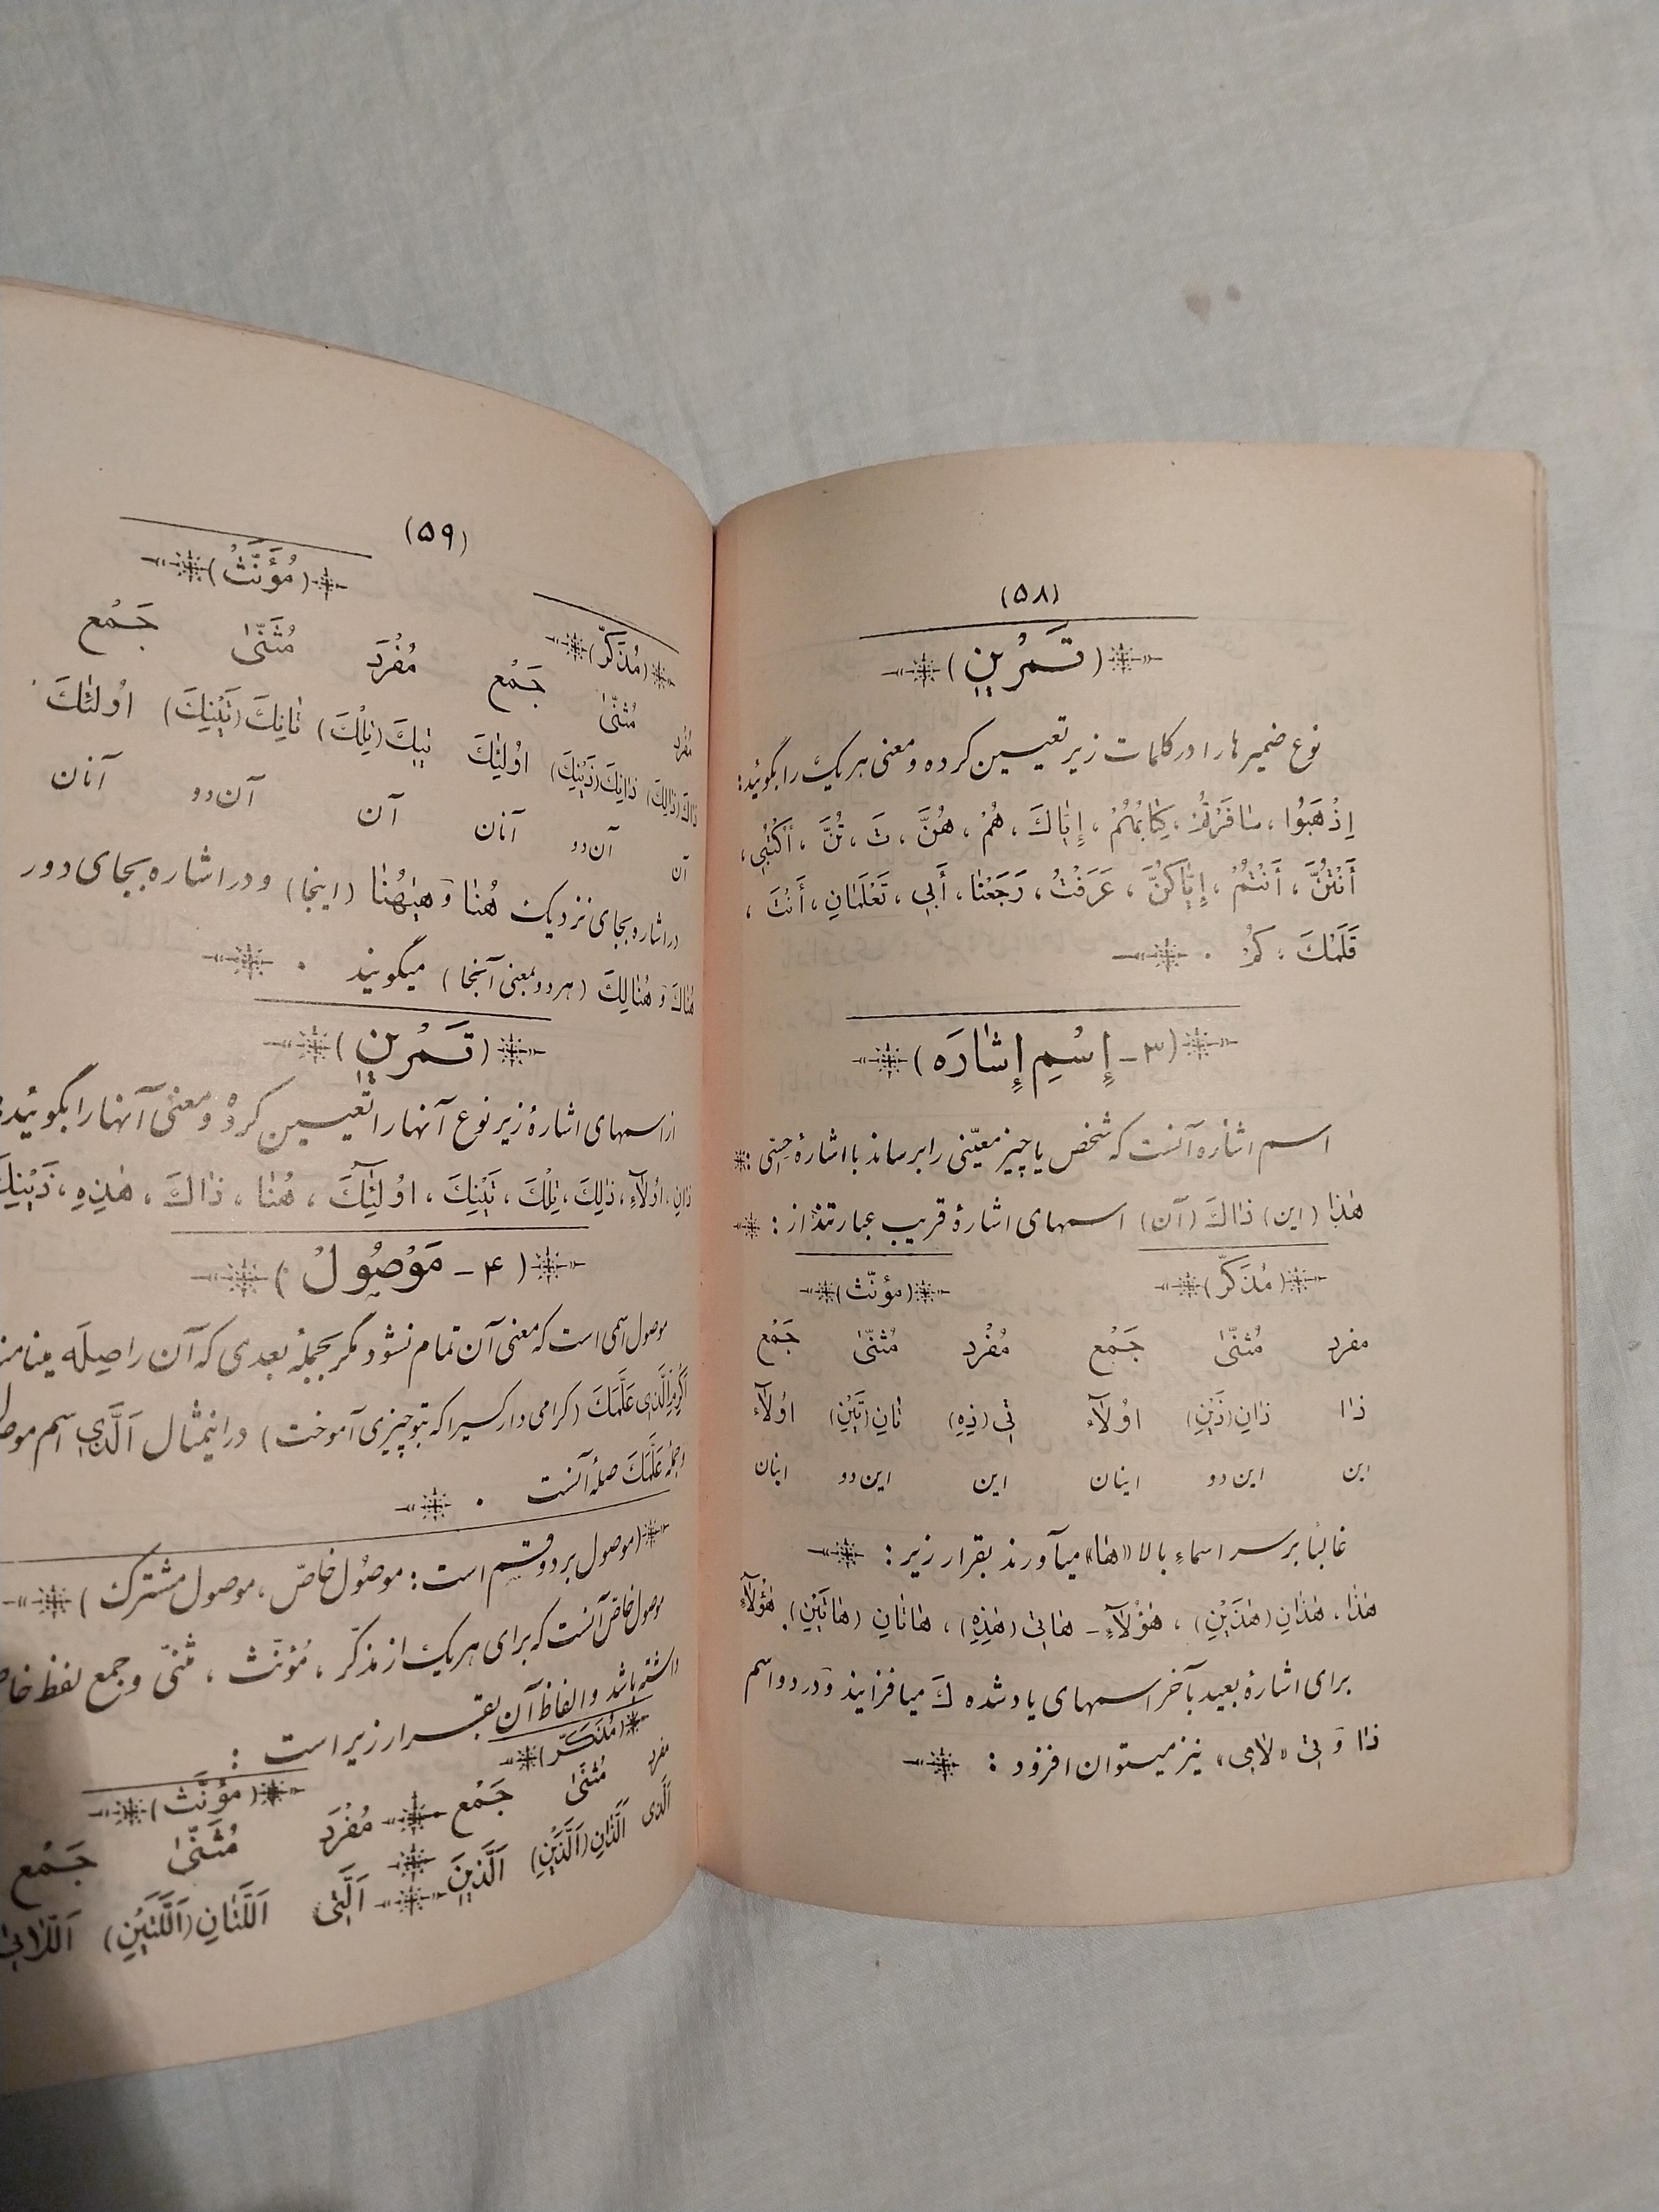 (۵۸)
(تَمْرین)
نوع ضمیرها را در کلمات زیر تعیین کرده و معنی هریک را بگوئید:
اِذْهَبُوا، سافَرْتُمْ، کِتابُهُمْ، إِیّاكَ، هُمْ، هُنَّ، تَ، تُنَّ، أُکْتُبی،
أَنْتُنَّ، أَنْتُمْ، إِیّاکُنَّ، عَرَفْتُ، رَجَعْنا، أَبی، تَعْلَمانِ، أَنْتَ،
قَلَمُكَ، کُمْ .
(۳ - إِسْمِ إِشارَه)
اسم اشاره آنست که شخص یا چیز معیّنی را برساند با اشارهٔ حِسّی:
هٰذا (این) ذاكَ (آن) اسمهای اشارهٔ قریب عبارتند از:
(مُذَکَّرْ) (مؤنّث)
مفرد مُثَنّیٰ جَمْع مُفْرَد مُثَنّیٰ جَمْع
ذا ذانِ (ذَیْنِ) اُولآءِ تی (ذِهِ) تانِ (تَیْنِ) اُولآءِ
این این دو اینان این این دو اینان
غالباً بر سر اسماءِ بالا «ها» میآورند بقرار زیر:
هٰذا، هٰذانِ (هٰذَیْنِ)، هٰؤُلآءِ - هاتی (هٰذِهِ)، هاتانِ (هاتَیْنِ) هٰؤُلآءِ
برای اشارهٔ بعید بآخر اسمهای یاد شده كَ میافزایند وَ در دو اسم
ذا وَ تی «لامی» نیز میتوان افزود:
(۵۹)
(مُذَکَّرْ) (مُؤَنَّثْ)
مُفْرَد مُثَنّیٰ جَمْع مُفْرَد مُثَنّیٰ جَمْع
ذاكَ (ذالِكَ) ذانِكَ (ذَیْنِكَ) اُولئِكَ تیكَ (تِلْكَ) تانِكَ (تَیْنِكَ) اُولئِكَ
آن آن دو آنان آن آن دو آنان
در اشاره بجای نزدیك هُنا وَ هٰیهُنا (اینجا) و در اشاره بجای دور
هُناكَ وَ هُنالِكَ (هر دو بمعنی آنجا) میگویند .
(تَمْرین)
از اسمهای اشارهٔ زیر نوع آنها را تعیین کرده و معنی آنها را بگوئید:
ذانِ، اُولآءِ، ذالِكَ، تِلْكَ، تَیْنِكَ، اُولئِكَ، هُنا، ذاكَ، هٰذِهِ، ذَیْنِكَ
(۴ - مَوْصُولْ)
موصول اسمی است که معنی آن تمام نشود مگر بجملهٔ بعدی که آن را صِلَه مینامند
اَکْرِمِ الَّذی عَلَّمَكَ (گرامی دار کسیرا که بتو چیزی آموخت) در اینمثال اَلَّذی اسم موصول
وجملهٔ عَلَّمَكَ صلهٔ آنست .
(موصول بر دو قسم است: موصُول خاصّ، موصول مشترك)
موصول خاصّ آنست که برای هریك از مذکّر، مُؤنّث، مُثنّی و جمع لفظ
داشته باشد و الفاظ آن بقرار زیر است :
(مُذَکَّرْ) (مُؤَنَّث)
مفرد مُثَنّیٰ جَمْع مُفْرَد مُثَنّیٰ جَمْع
اَلَّذی اَلَّذانِ (اَلَّذَیْنِ) اَلَّذینَ اَلَّتی اَللَّتانِ (اَللَّتَیْنِ) اَللّاتی